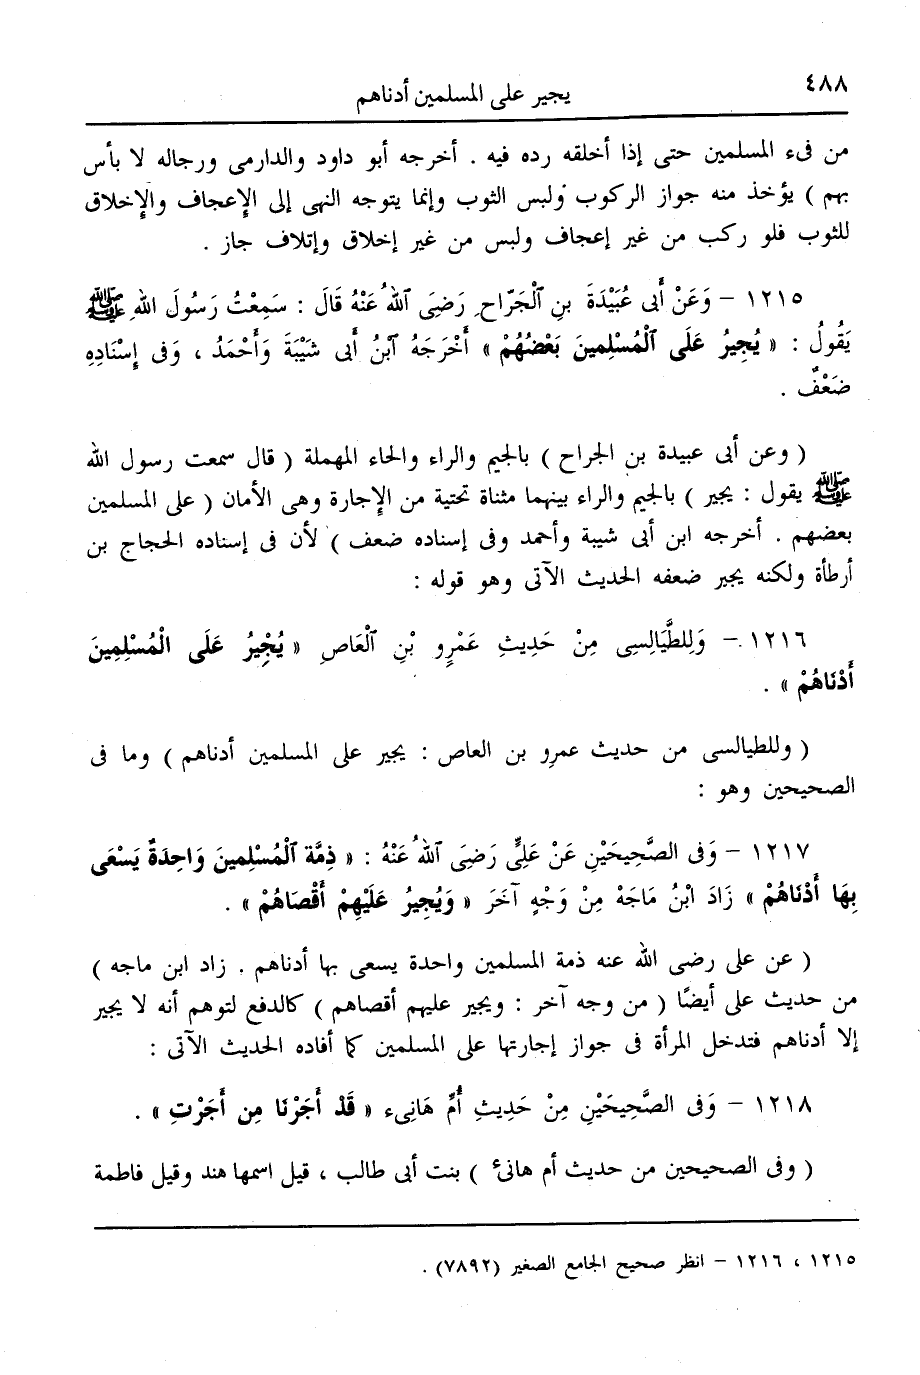 ٤٨٨
يجير على المسلمين أدناهم
من فىء المسلمين حتى إذا أخلقه رده فيه . أخرجه أبو داود والدارمى ورجاله لا بأس
بهم ) يؤخذ منه جواز الركوب ولبس الثوب وإنما يتوجه النهى إلى الإعجاف والإخلاق
للثوب فلو ركب من غير إعجاف ولبس من غير إخلاق وإتلاف جاز .
١٢١٥ – وَعَنْ أَبِى عُبَيْدَةَ بنِ ٱلْجَرّاحِ رَضِىَ ٱللهُ عَنْهُ قَالَ : سَمِعْتُ رَسُولَ اللهِ ﷺ
يَقُولُ : « يُجِيرُ عَلَى ٱلْمُسْلِمينَ بَعْضُهُمْ » أَخْرَجَهُ ٱبْنُ أَبى شَيْبَةَ وَأَحْمَدُ ، وَفى إسْنَادِهِ
ضَعْفٌ .
( وعن أبى عبيدة بن الجراح ) بالجيم والراء والحاء المهملة ( قال سمعت رسول الله
ﷺ يقول : يجير ) بالجيم والراء بينهما مثناة تحتية من الإجارة وهى الأمان ( على المسلمين
بعضهم . أخرجه ابن أبى شيبة وأحمد وفى إسناده ضعف ) لأن فى إسناده الحجاج بن
أرطأة ولكنه يجير ضعفه الحديث الآتى وهو قوله :
١٢١٦ – وَلِلطَّيَالِسِى مِنْ حَدِيثِ عَمْرِو بْنِ ٱلْعَاصِ « يُجْيِرُ عَلَى الْمُسْلِمِينَ
أَدْنَاهُمْ » .
( وللطيالسى من حديث عمرو بن العاص : يجير على المسلمين أدناهم ) وما فى
الصحيحين وهو :
١٢١٧ – وَفى الصَّحِيحَيْنِ عَنْ عَلِىٍّ رَضِىَ ٱللهُ عَنْهُ : « ذِمَّة ٱلْمُسْلِمينَ وَاحِدَةٌ يَسْعَى
بِهَا أَدْنَاهُمْ » زَادَ ابْنُ مَاجَهْ مِنْ وَجْهٍ آخَرَ « وَيُجِيرُ عَلَيْهِمْ أَقْصَاهُمْ » .
( عن على رضى الله عنه ذمة المسلمين واحدة يسعى بها أدناهم . زاد ابن ماجه )
من حديث على أيضًا ( من وجه آخر : ويجير عليهم أقصاهم ) كالدفع لتوهم أنه لا يجير
إلا أدناهم فتدخل المرأة فى جواز إجارتها على المسلمين كما أفاده الحديث الآتى :
١٢١٨ – وَفى الصَّحِيحَيْنِ مِنْ حَدِيثِ أُمِّ هَانِىء « قَدْ أَجَرْنَا مِن أَجَرْتِ » .
( وفى الصحيحين من حديث أم هانىء ) بنت أبى طالب ، قيل اسمها هند وقيل فاطمة
١٢١٥ ، ١٢١٦ – انظر صحيح الجامع الصغير (٧٨٩٢) .